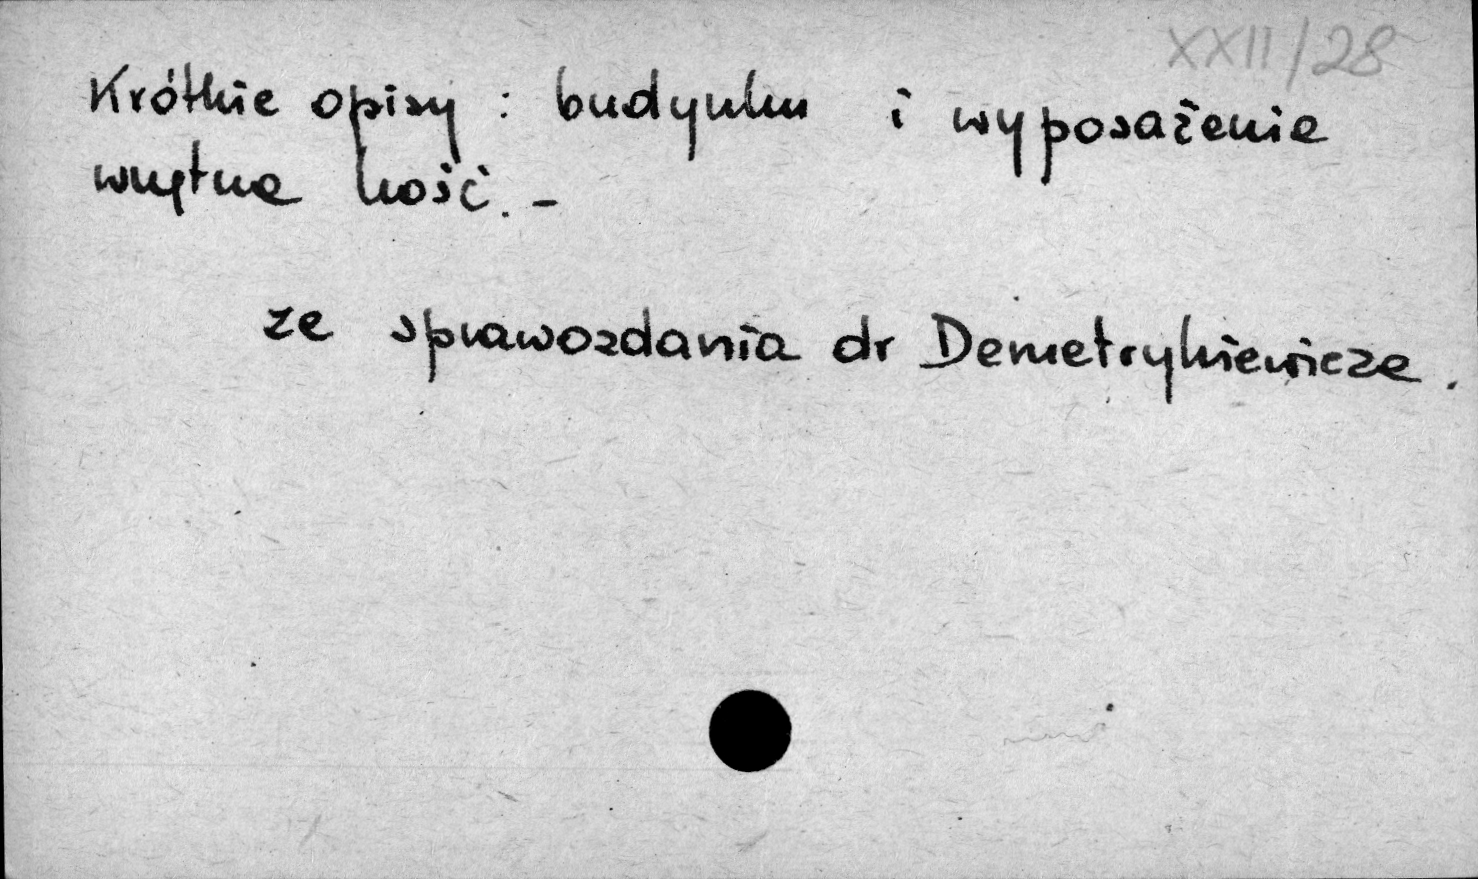 XXII/28
Krótkie opisy : budynku i wyposażenie
wnętrza kość. -
ze sprawozdania dr Demetrykiewicza.